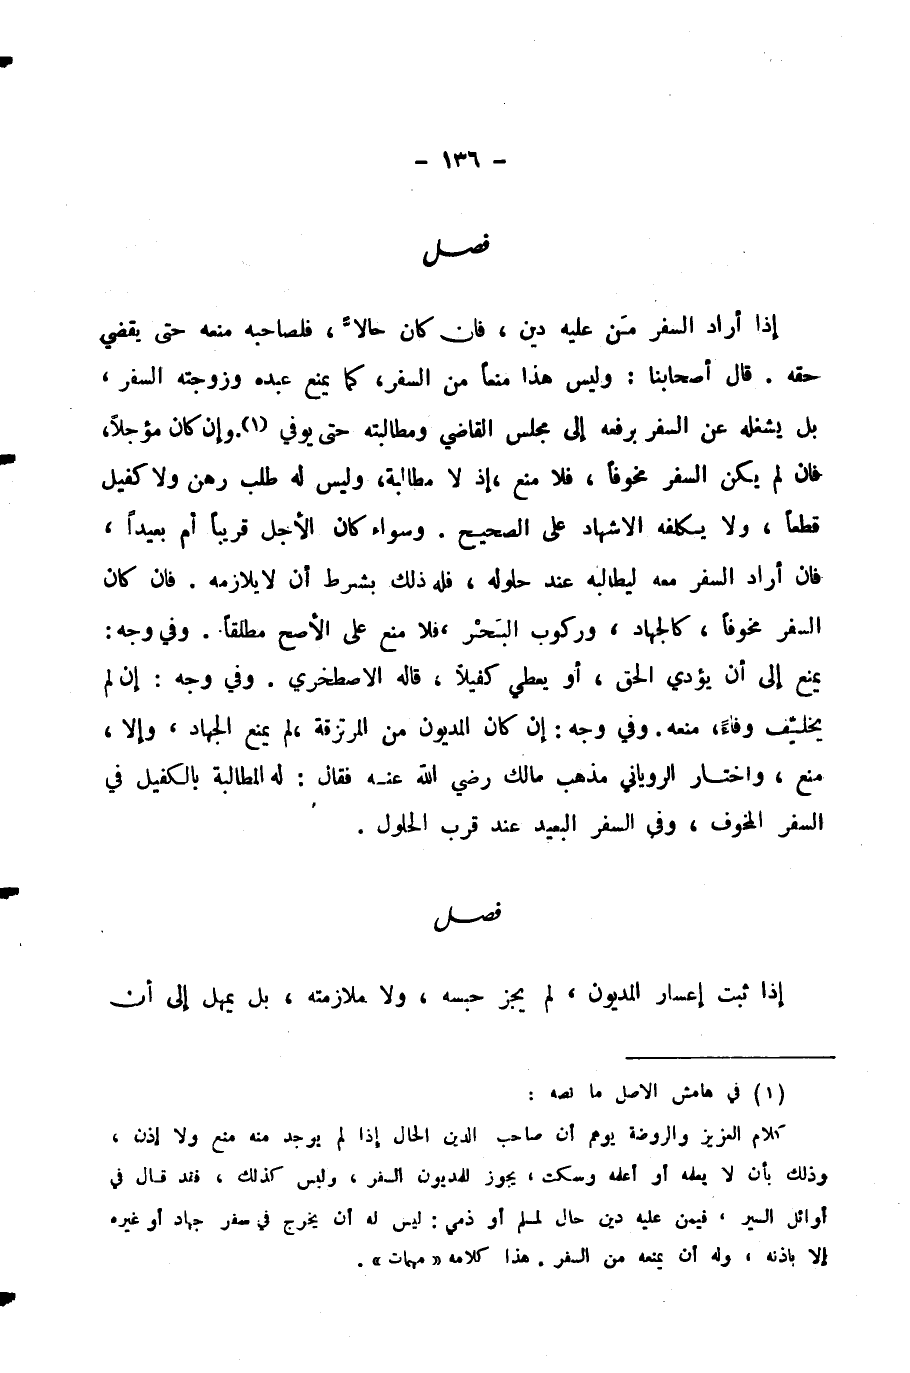 - ١٣٦ -
فصل
إذا أراد السفر مَن عليه دين ، فان كان حالاً ، فلصاحبه منعه حتى يقضي
حقه . قال أصحابنا : وليس هذا منعاً من السفر، كما يمنع عبده وزوجته السفر ،
بل يشغله عن السفر برفعه إلى مجلس القاضي ومطالبته حتى يوفي (١).وإن كان مؤجلاً،
فان لم يكن السفر مخوفاً ، فلا منع ،إذ لا مطالبة، وليس له طلب رهن ولا كفيل
قطعاً ، ولا يكلفه الاشهاد على الصحيح . وسواء كان الأجل قريباً أم بعيداً ،
فان أراد السفر معه ليطالبه عند حلوله ، فله ذلك بشرط أن لا يلازمه . فان كان
السفر مخوفاً ، كالجهاد ، وركوب البَحْر ،فلا منع على الأصح مطلقاً . وفي وجه:
يمنع إلى أن يؤدي الحق ، أو يعطي كفيلاً ، قاله الاصطخري . وفي وجه : إن لم
يخلِّف وفاءً، منعه. وفي وجه : إن كان المديون من المرتزقة ،لم يمنع الجهاد ، وإلا ،
منع ، واختار الروياني مذهب مالك رضي الله عنه فقال : له المطالبة بالكفيل في
السفر المخوف ، وفي السفر البعيد عند قرب الحلول .
فصل
إذا ثبت إعسار المديون ، لم يجز حبسه ، ولا ملازمته ، بل يمهل إلى أن
(١) في هامش الاصل ما نصه :
كلام العزيز والروضة يوهم أن صاحب الدين الحال إذا لم يوجد منه منع ولا إذن ،
وذلك بأن لا يعلمه أو أعلمه وسكت ، يجوز للمديون السفر ، وليس كذلك ، فقد قال في
أوائل السير ، فيمن عليه دين حال لمسلم أو ذمي : ليس له أن يخرج في سفر جهاد أو غيره
إلا باذنه ، وله أن يمنعه من السفر . هذا كلامه « مهمات » .